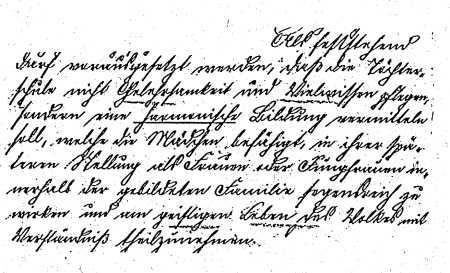 Als feststehend
darf vorausgesetzt werden, daß die Töchter-
schule nicht Gelehrsamkeit und Vielwissen pflegen,
sondern eine harmonische Bildung vermitteln
soll, welche die Mädchen befähigt, in ihrer spä-
teren Stellung als Frauen oder Jungfrauen in-
nerhalb der gebildeten Familie segensreich zu
wirken und am geistigen Leben des Volkes mit
Verständniß theilzunehmen.